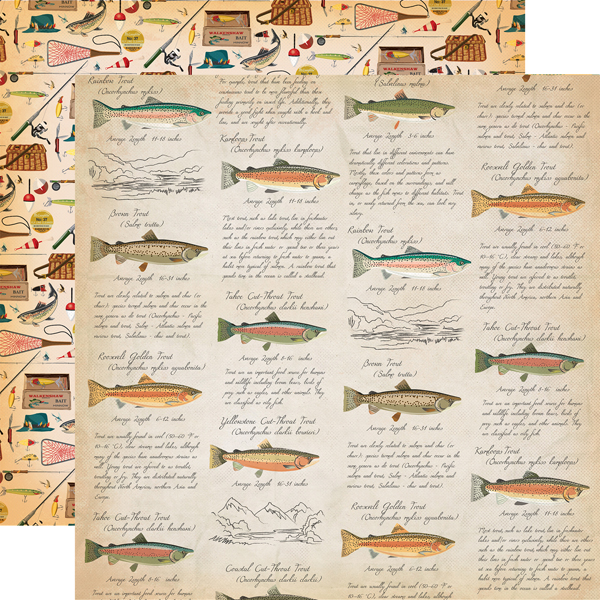 WALKERSHAW
BAIT
Rainbow Trout
(Oncorhynchus mykiss)
Average Length 11-18 inches
Brown Trout
(Salmo trutta)
Average Length 16-31 inches
Trout are closely related to salmon and char (or
char): species termed salmon and char occur in the
same genera as do trout (Oncorhynchus - Pacific
salmon and trout, Salmo - Atlantic salmon and
various trout, Salvelinus - char and trout).
Roosevelt Golden Trout
(Oncorhynchus mykiss aguabonita)
Average Length 6-12 inches
Trout are usually found in cool (50-60 °F or
10-16 °C), clear streams and lakes, although
many of the species have anadromous strains as
well. Young trout are referred to as troutlet,
troutling or fry. They are distributed naturally
throughout North America, northern Asia and
Europe.
Tahoe Cut-Throat Trout
(Oncorhynchus clarkii henshawi)
Average Length 8-16 inches
Trout are an important food source for humans
For example, trout that have been feeding on
crustaceans tend to be more flavorful than those
feeding primarily on insect life. Additionally, they
provide a good fight when caught with a hook and
line, and are sought after recreationally.
Kamloops Trout
(Oncorhynchus mykiss kamloops)
Average Length 11-18 inches
Most trout, such as lake trout, live in freshwater
lakes and/or rivers exclusively, while there are others,
such as the rainbow trout, which may either live out
their lives in fresh water or spend two or three years
at sea before returning to fresh water to spawn, a
habit more typical of salmon. A rainbow trout that
spends time in the ocean is called a steelhead.
Tahoe Cut-Throat Trout
(Oncorhynchus clarkii henshawi)
Average Length 8-16 inches
Trout are an important food source for humans
and wildlife including brown bears, birds of
prey such as eagles, and other animals. They
are classified as oily fish.
Yellowstone Cut-Throat Trout
(Oncorhynchus clarkii bouvieri)
Average Length 16-31 inches
Coastal Cut-Throat Trout
(Oncorhynchus clarkii clarkii)
Average Length 3-6 inches
Trout that live in different environments can have
dramatically different colorations and patterns.
Mostly, these colors and patterns form as
camouflage, based on the surroundings, and will
change as the fish moves to different habitats. Trout
in, or newly returned from the sea, can look very
silvery.
Rainbow Trout
(Oncorhynchus mykiss)
Average Length 11-18 inches
Brown Trout
(Salmo trutta)
Average Length 16-31 inches
Trout are closely related to salmon and char (or
char): species termed salmon and char occur in the
same genera as do trout (Oncorhynchus - Pacific
salmon and trout, Salmo - Atlantic salmon and
various trout, Salvelinus - char and trout).
Roosevelt Golden Trout
(Oncorhynchus mykiss aguabonita)
Average Length 6-12 inches
Trout are usually found in cool (50-60 °F or
Average Length 16-31 inches
Trout are closely related to salmon and char (or
char): species termed salmon and char occur in the
same genera as do trout (Oncorhynchus - Pacific
salmon and trout, Salmo - Atlantic salmon and
various trout, Salvelinus - char and trout).
Roosevelt Golden Trout
(Oncorhynchus mykiss aguabonita)
Average Length 6-12 inches
Trout are usually found in cool (50-60 °F or
10-16 °C), clear streams and lakes, although
many of the species have anadromous strains as
well. Young trout are referred to as troutlet,
troutling or fry. They are distributed naturally
throughout North America, northern Asia and
Europe.
Tahoe Cut-Throat Trout
(Oncorhynchus clarkii henshawi)
Average Length 8-16 inches
Trout are an important food source for humans
and wildlife including brown bears, birds of
prey such as eagles, and other animals. They
are classified as oily fish.
Kamloops Trout
(Oncorhynchus mykiss kamloops)
Average Length 11-18 inches
Most trout, such as lake trout, live in freshwater
lakes and/or rivers exclusively, while there are others,
such as the rainbow trout, which may either live out
their lives in fresh water or spend two or three years
at sea before returning to fresh water to spawn, a
habit more typical of salmon. A rainbow trout that
spends time in the ocean is called a steelhead.